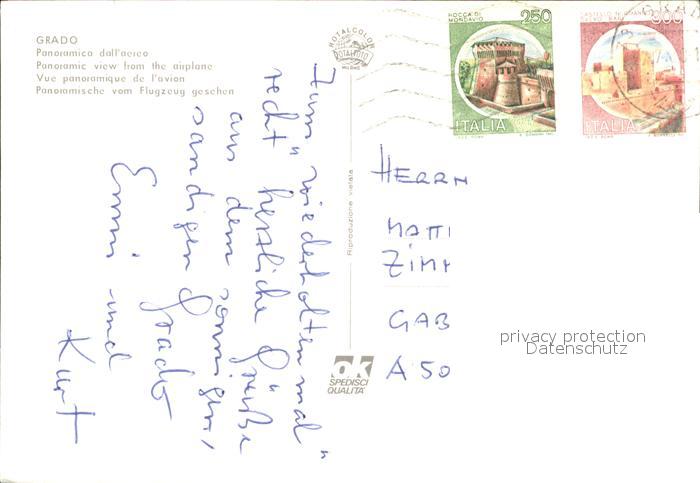 GRADO
Panoramica dall'aereo
Panoramic view from the airplane
Vue panoramique de l'avion
Panoramische vom Flugzeug gesehen
ROTALCOLOR
ROTALFOTO
MILANO
ROCCA DI
MONDAVIO
250
ITALIA
ITALIA
Zum „wiederholten mal"
recht herzliche Grüße
aus dem sonnigen,
sandigen Grado
Emmi und
Kurt
Riproduzione vietata
ok
SPEDISCI
QUALITÀ
HERRN
MATTI
ZIMM
GAB
A 50
privacy protection
Datenschutz